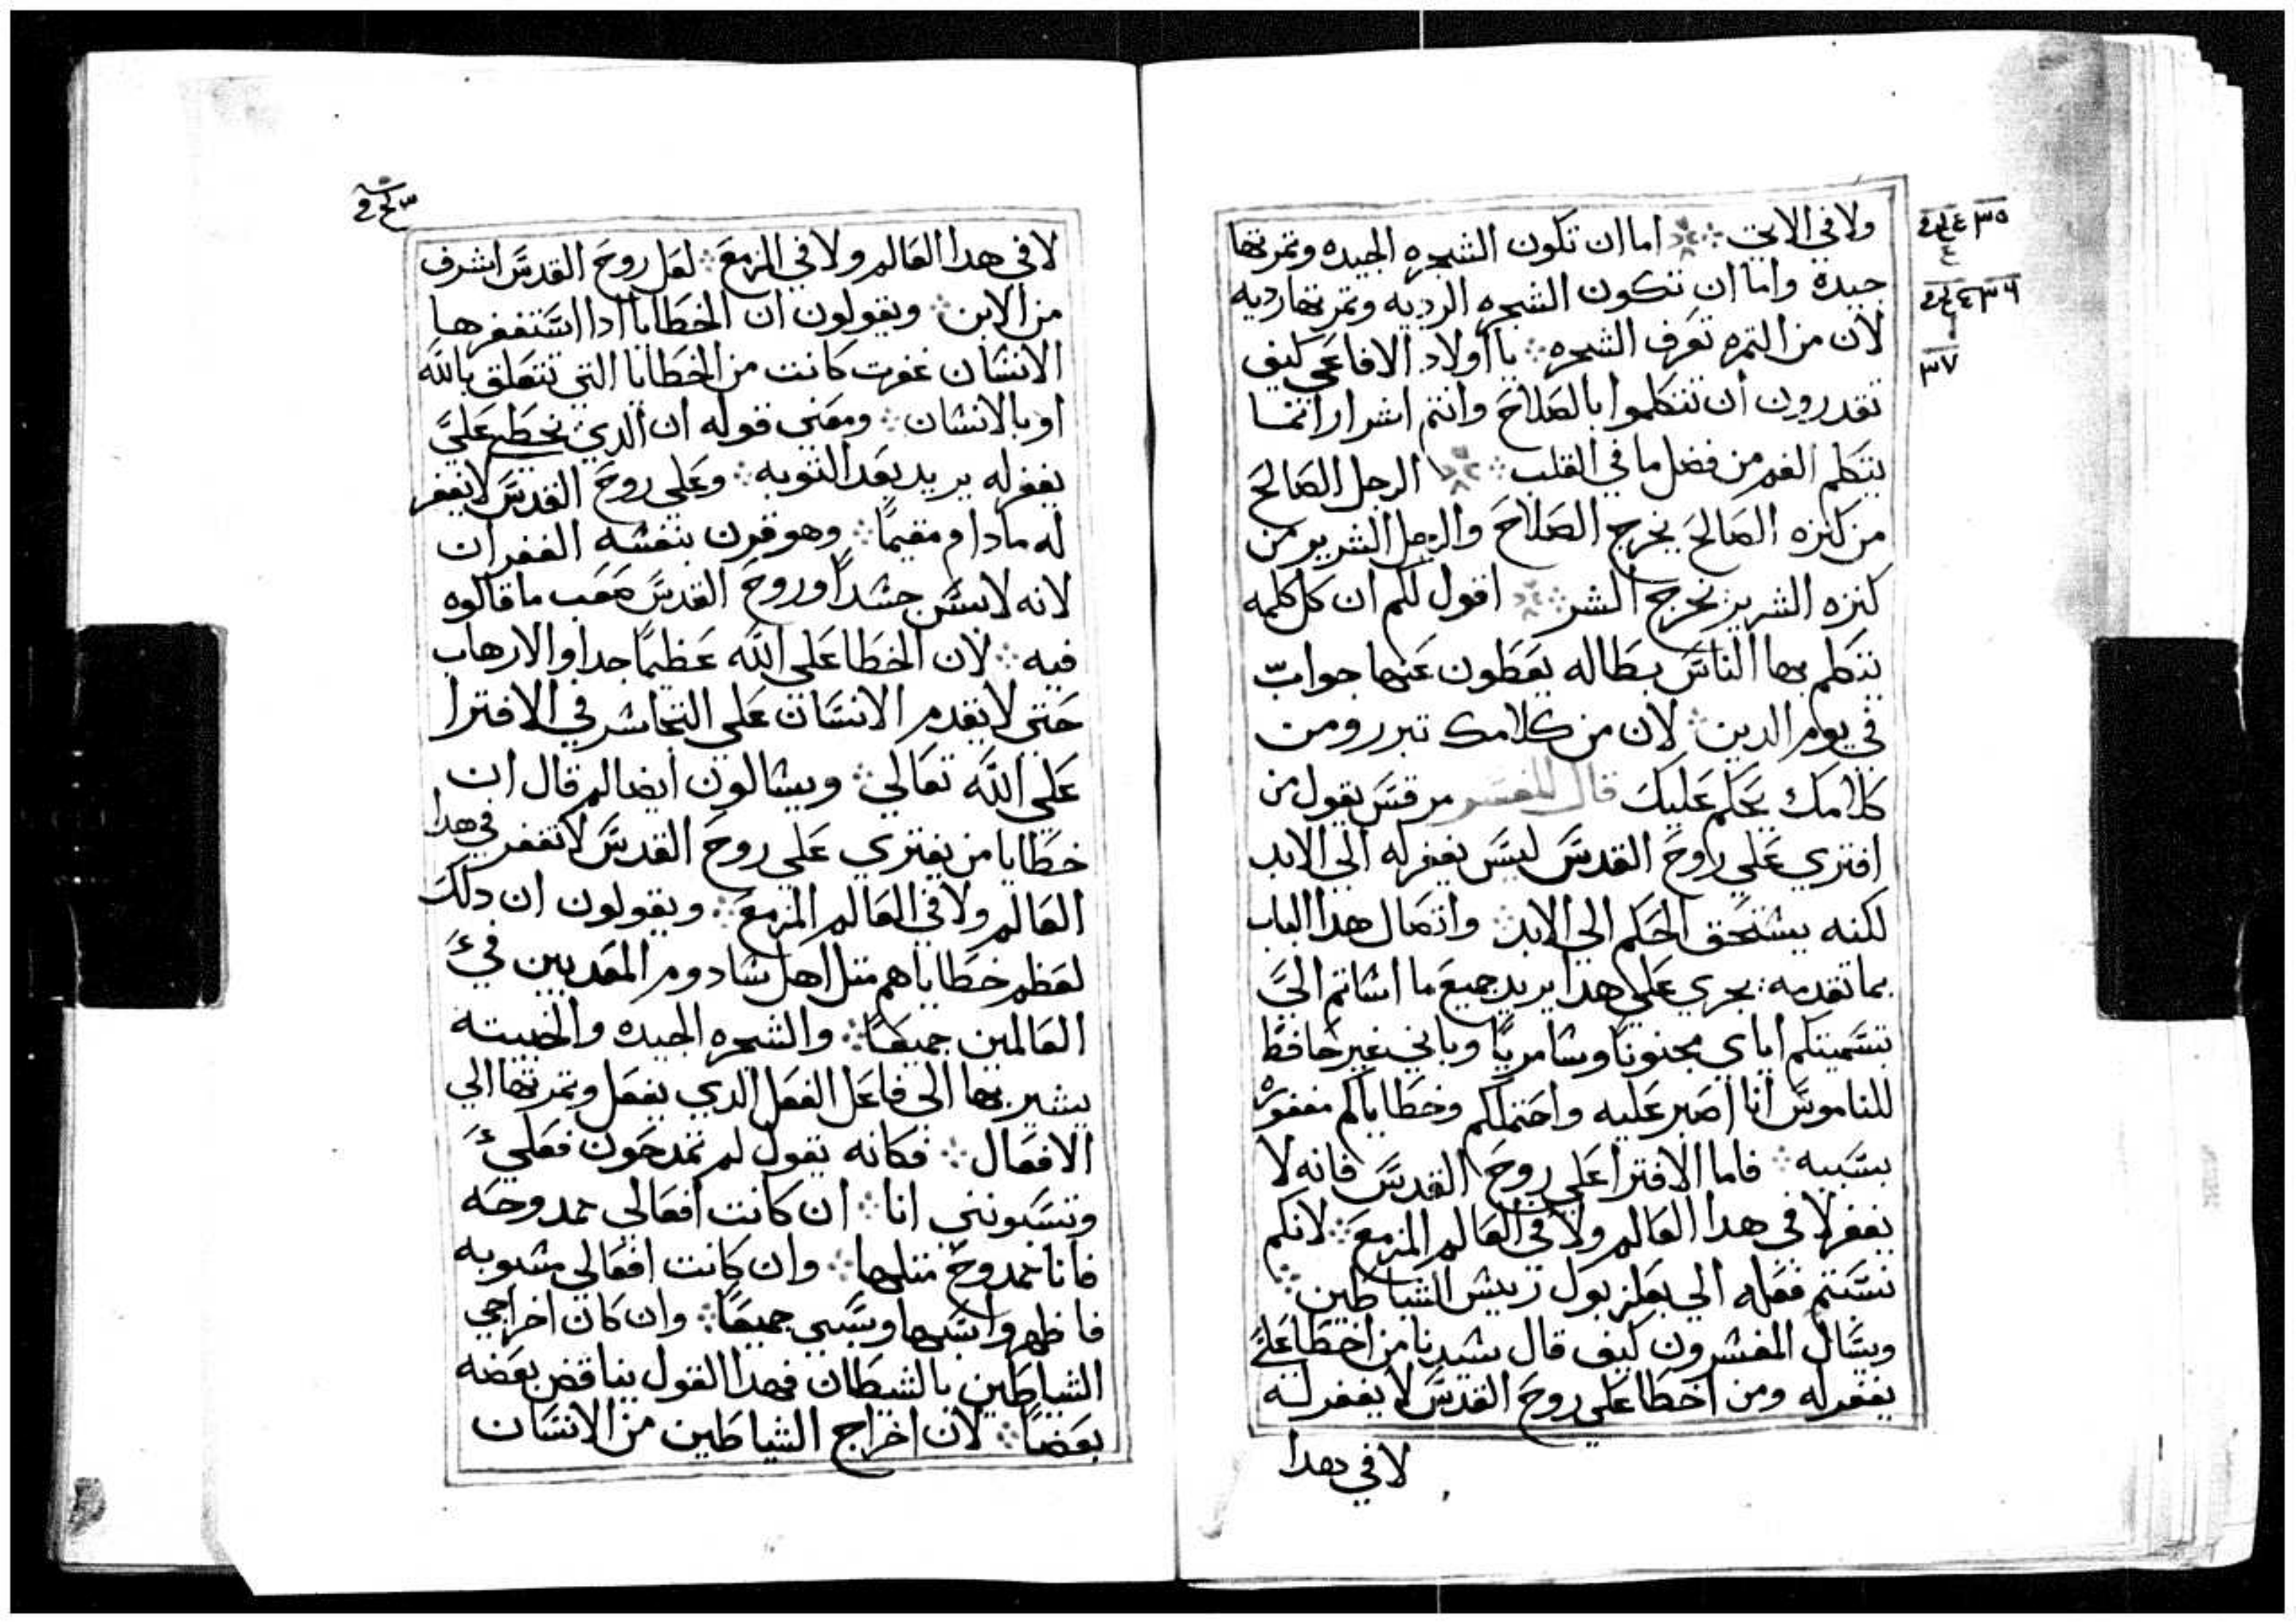 ولا في الاتي ۞ اما ان تكون الشجره الجيده وتمرتها
جيده واما ان تكون الشجره الرديه وتمرتها رديه
لان من التمره تعرف الشجره ؞ يا اولاد الافاعي كيف
تقدرون ان تتكلموا بالصلاح وانتم اشرار انما
يتكلم الفم من فضل ما في القلب ؞ الرجل الصالح
من كنزه الصالح يخرج الصلاح والرجل الشرير من
كنزه الشرير يخرج الشر ؞ اقول لكم ان كل كلمه
تتكلم بها الناس بطاله يعطون عنها جواب
في يوم الدين ؞ لان من كلامك تبرر ومن
كلامك يحكم عليك قال المفسر مرقس يقول من
افتري علي روح القدس ليس يغفر له الي الابد
لكنه يستحق الحكم الي الابد ؞ واتصال هدا الباب
بما تقدمه يجري علي هدا يريد جميع ما اساتم الي
بتسميتكم اياي مجنونا وسامريا وباني غير حافظ
للناموس انا اصبر عليه واحتملكم وخطاياكم مغفوره
بسببه ؞ فاما الافترا علي روح القدس فانه لا
يغفر لا في هدا العالم ولا في العالم المزمع ؞ لانكم
نسبتم فعله الي بعلزبول رييس الشياطين ؞
ويسال المفسرون كيف قال سيدنا من اخطا علي
يغفر له ومن اخطا علي روح القدس لا يغفر له
لا في هدا
٣٥
٤
٣٦
٣٧
لا في هدا العالم ولا في المزمع ؞ لعل روح القدس اشرف
من الابن ؞ ويقولون ان الخطايا ادا استغفرها
الانسان غفرت كانت من الخطايا التي تتعلق بالله
او بالانسان ؞ ومعني قوله ان الدي يخطي علي
يغفر له يريد بعد التوبه ؞ وعلي روح القدس لا يغفر
له مادام مقيما ؞ وهو قرن بنفسه الغفران
لانه لابس جسدا وروح القدس صعب ما قالوه
فيه ؞ لان الخطا علي الله عظيما جدا والارهاب
حتي لا يقدم الانسان علي التجاسر في الافترا
علي الله تعالي ؞ ويسالون ايضا لم قال ان
خطايا من يفتري علي روح القدس لا تغفر في هدا
العالم ولا في العالم المزمع ؞ ويقولون ان دلك
لعظم خطاياهم متل اهل سادوم المعدبين في
العالمين جميعا ؞ والشجره الجيده والخبيته
يشير بها الي فاعل الفعل الدي يفعل وتمرتها الي
الافعال ؞ فكانه يقول لم تمدحون فعلي
وتسبونني انا ؞ ان كانت افعالي ممدوحه
فانا ممدوح متلها ؞ وان كانت افعالي مسبوبه
فاظهروا سبها وسبي جميعا ؞ وان كان اخراجي
الشياطين بالشيطان فهدا القول يناقض بعضه
بعضا ؞ لان اخراج الشياطين من الانسان